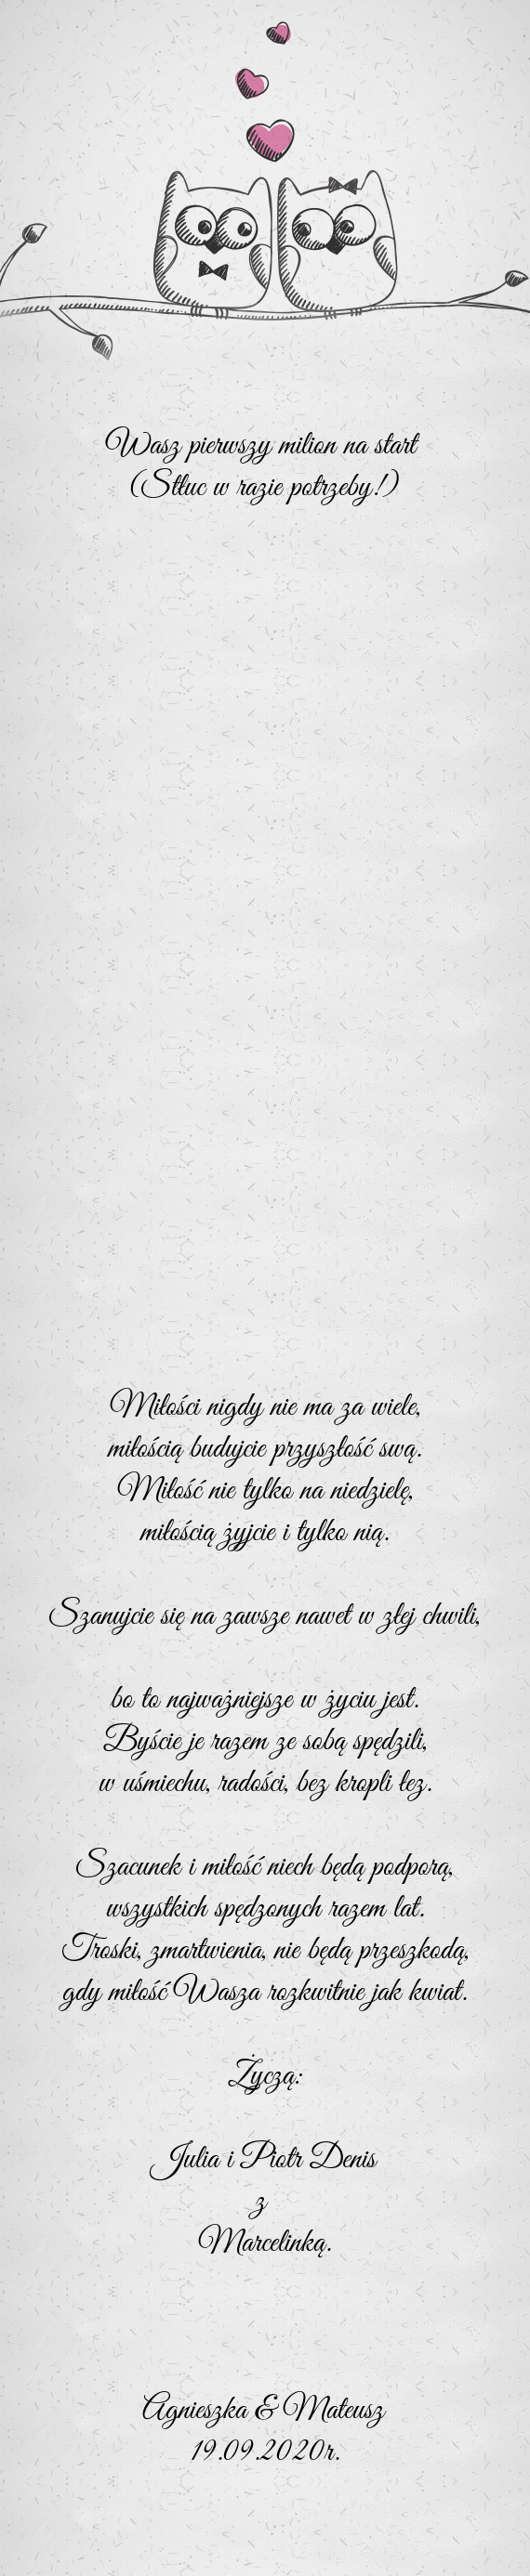 Wasz pierwszy milion na start
(Stłuc w razie potrzeby!)
Miłości nigdy nie ma za wiele,
miłością budujcie przyszłość swą.
Miłość nie tylko na niedzielę,
miłością żyjcie i tylko nią.
Szanujcie się na zawsze nawet w złej chwili,
bo to najważniejsze w życiu jest.
Byście je razem ze sobą spędzili,
w uśmiechu, radości, bez kropli łez.
Szacunek i miłość niech będą podporą,
wszystkich spędzonych razem lat.
Troski, zmartwienia, nie będą przeszkodą,
gdy miłość Wasza rozkwitnie jak kwiat.
Życzą:
Julia i Piotr Denis
z
Marcelinką.
Agnieszka & Mateusz
19.09.2020r.